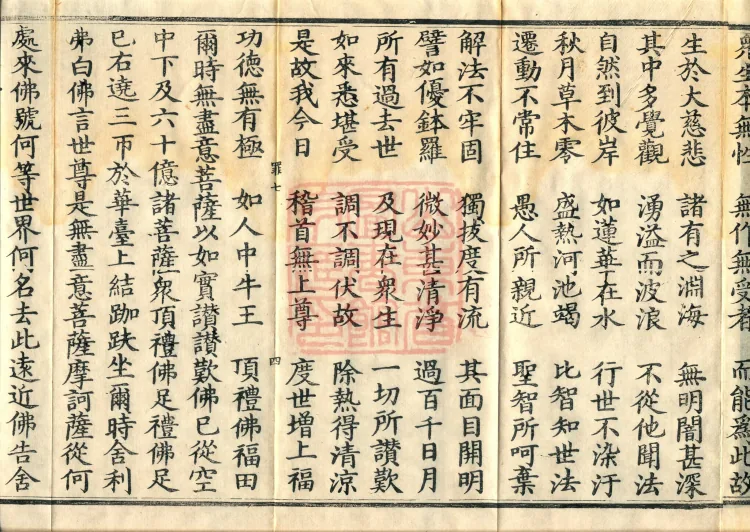 眾生本無性 無作無受者 而能爲此故
生於大慈悲 諸有之淵海 無明闇甚深
其中多覺觀 湧溢而波浪 不從他聞法
自然到彼岸 如蓮華在水 行世不染汙
秋月草木零 盛熱河池竭 比智知世法
遷動不常住 愚人所親近 聖智所呵棄
解法不牢固 獨拔度有流 其面目開明
譬如優鉢羅 微妙甚清淨 過百千日月
所有過去世 及現在衆生 一切所讃歎
如來悉堪受 調不調伏故 除熱得清涼
是故我今日 稽首無上尊 度世增上福
罪七 四
功德無有極 如人中牛王 頂禮佛福田
爾時無盡意菩薩以如實讃讃歎佛已從空
中下及六十億諸菩薩衆頂禮佛足禮佛足
已右遶三帀於華臺上結跏趺坐爾時舍利
弗白佛言世尊是無盡意菩薩摩訶薩從何
處來佛號何等世界何名去此遠近佛告舍